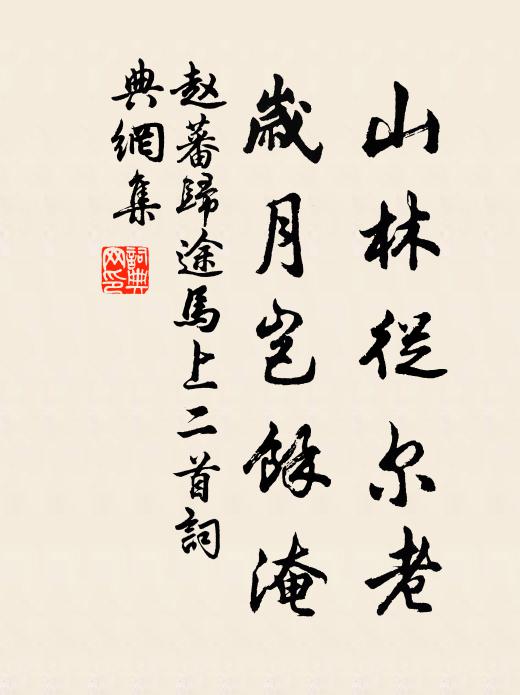 山林從尔老
歲月豈餘淹
赵蕃歸途馬上二首詞
典網集
詞典
网印